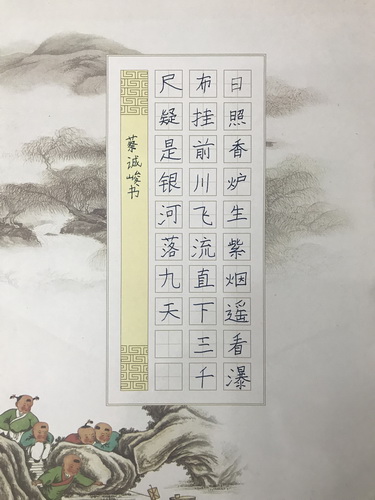 日照香炉生紫烟遥看瀑
布挂前川飞流直下三千
尺疑是银河落九天
蔡诚峻书